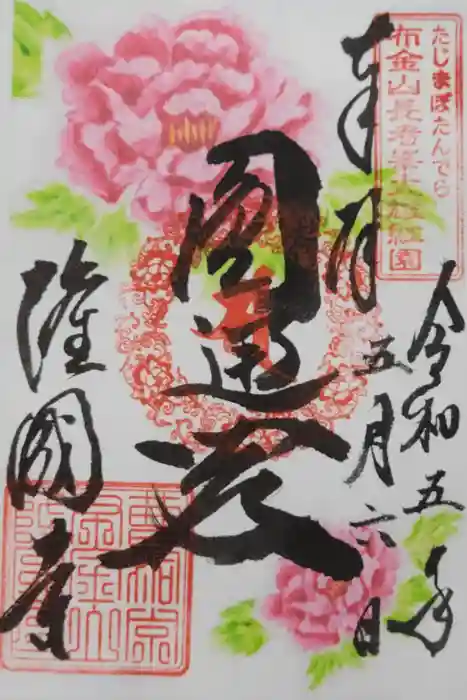 たじまぼたんでら
布金山長者峯大牡丹園
奉拝
令和五年
五月六日
圓通殿
隆國寺